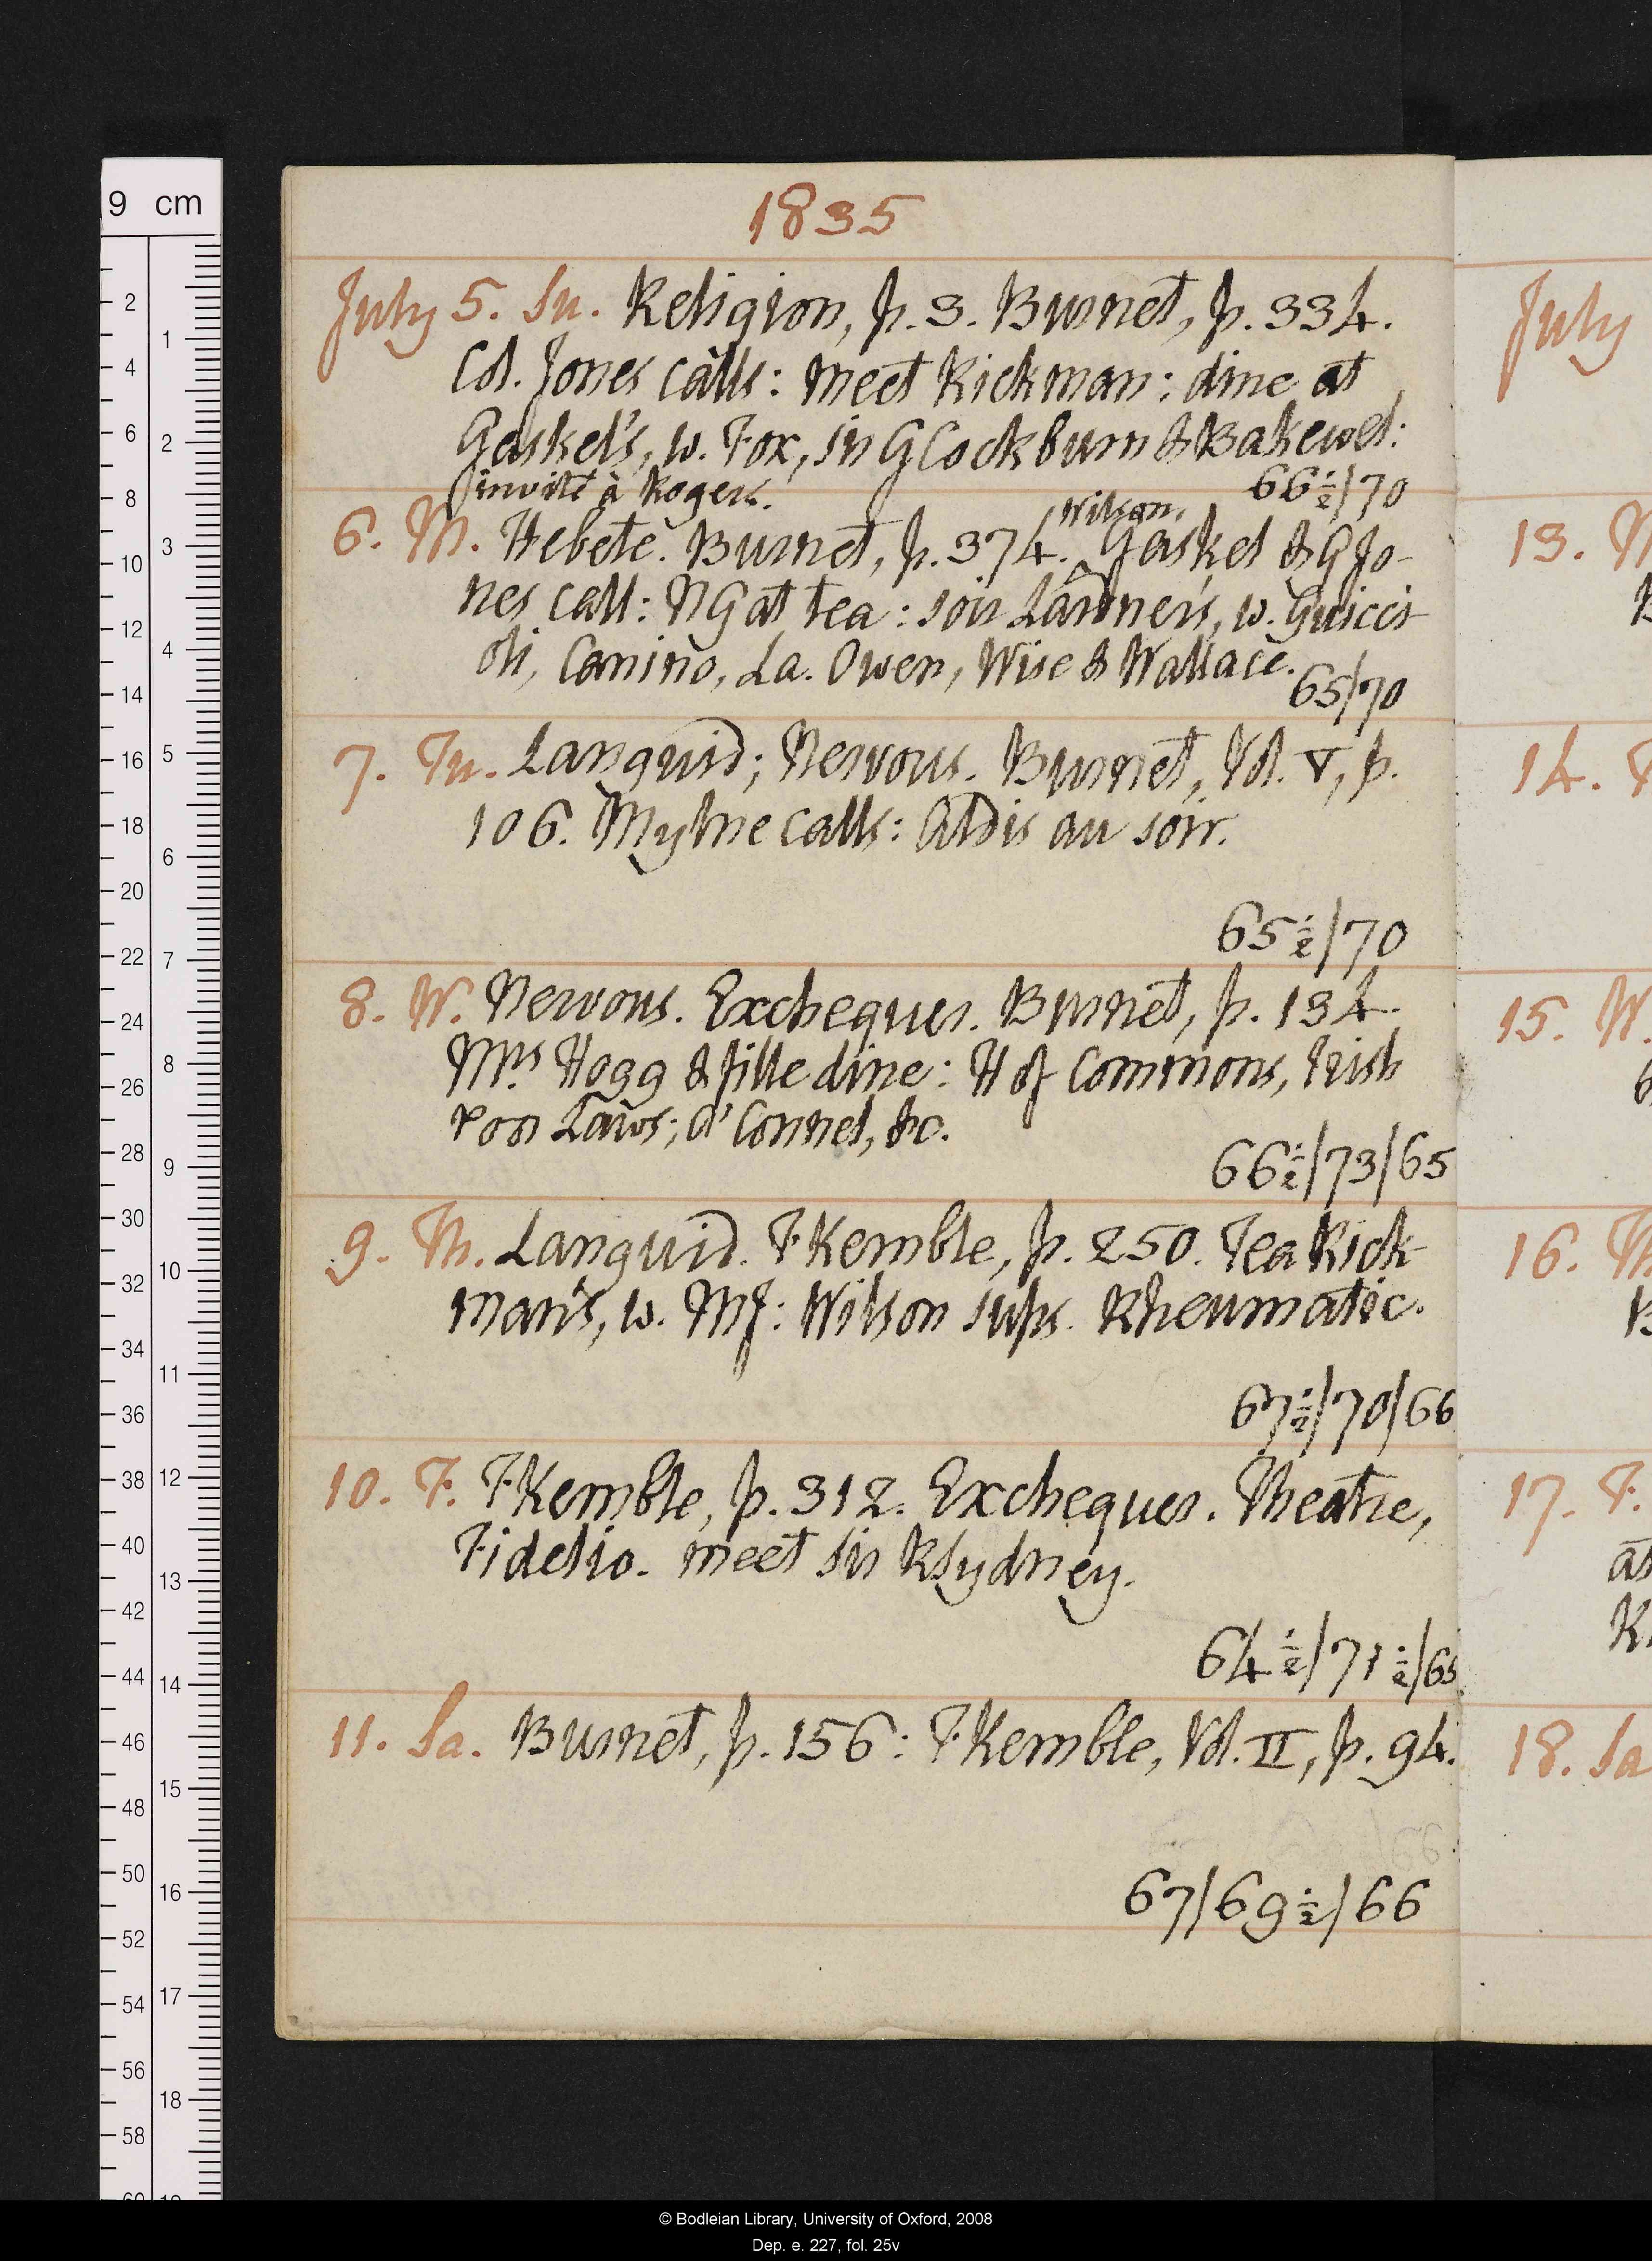 1835
July 5. Su. Religion, p. 3. Burnet, p. 334.
Col. Jones calls: meet Rickman: dine at
Gaskel's, w. Fox, sir G Cockburn & Bakewel:
invité à Rogers.
66½/70
Wilson,
6. M. Hebeté. Burnet, p. 374. ^ Gaskel & G Jo-
nes call: N G at tea: soir Lardner's, w. Guicci-
oli, Canino, La. Owen, Wise & Wallace.
65/70
7. Tu. Languid; Nervous. Burnet, Vol. V, p.
106. Mylne calls: Aldis au soir.
65½/70
8. W. Nervous. Exchequer. Burnet, p. 134.
Mrs Hogg & fille dine: H of Commons, Irish
Poor Laws; O'Connel, &c.
66½/73/65
9. Th. Languid. F Kemble, p. 250. Tea Rick-
man's, w. MJ: Wilson sups. Rheumatic.
67½/70/66
10. F. F Kemble, p. 312. Exchequer. Theatre,
Fidelio. meet Sir R Sydney.
64½/71½/65
11. Sa. Burnet, p. 156: F Kemble, Vol. II, p. 94.
67/69½/66
July
13. M
14. T
15. W.
16. Th
17. F.
18. Sa
9 cm
© Bodleian Library, University of Oxford, 2008
Dep. e. 227, fol. 25v